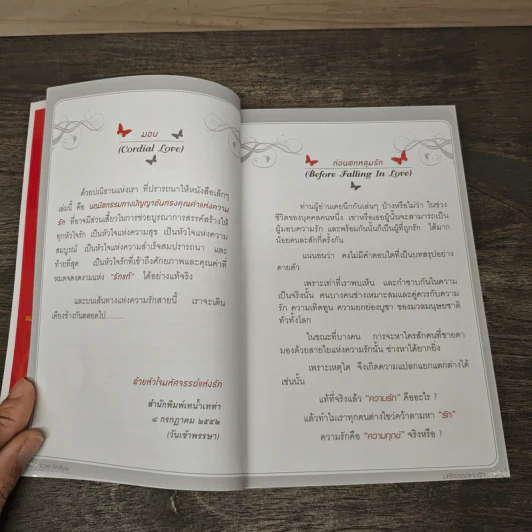 มอบ
(Cordial Love)
ด้วยปณิธานแห่งเรา ที่ปรารถนาให้หนังสือเล็กๆ
เล่มนี้ คือ นฤมิตกรรมทางปัญญาอันทรงคุณค่าแห่งความ
รัก ที่อาจมีส่วนเสี้ยวในการช่วยบูรณาการสรรค์สร้างให้
ทุกหัวใจรัก เป็นหัวใจแห่งความสุข เป็นหัวใจแห่งความ
สมบูรณ์ เป็นหัวใจแห่งความสำเร็จสมปรารถนา และ
ท้ายที่สุด เป็นหัวใจรักที่เข้าถึงศักยภาพและคุณค่าที่
หมดจดงดงามแห่ง "รักแท้" ได้อย่างแท้จริง
และบนเส้นทางแห่งความรักสายนี้ เราจะเดิน
เคียงข้างกันตลอดไป........
ด้วยหัวใจมหัศจรรย์แห่งรัก
สำนักพิมพ์เทน้ำเทท่า
๘ กรกฎาคม ๒๕๕๒
(วันเข้าพรรษา)
ก่อนตกหลุมรัก
(Before Falling In Love)
ท่านผู้อ่านเคยนึกกันเล่นๆ บ้างหรือไม่ว่า ในช่วง
ชีวิตของบุคคลคนหนึ่ง เขาหรือเธอผู้นั้นจะสามารถเป็น
ผู้มอบความรัก และพร้อมกันนั้นก็เป็นผู้ที่ถูกรัก ได้มาก
น้อยคนละสักกี่ครั้งกัน
แน่นอนว่า คงไม่มีคำตอบใดที่เป็นบทสรุปอย่าง
ตายตัว
เพราะเท่าที่เราพบเห็น และกำซาบกันในความ
เป็นจริงนั้น คนบางคนช่างเหมาะสมและคู่ควรกับความ
รัก ความเทิดทูน ความยกย่องบูชา ของมวลมนุษยชาติ
ทั่วทั้งโลก
ในขณะที่บางคน การจะหาใครสักคนที่ชายตา
มองด้วยสายใยแห่งความรักนั้น ช่างหาได้ยากยิ่ง
เพราะเหตุใด จึงเกิดความแปลกแยกแตกต่างได้
เช่นนั้น
แท้ที่จริงแล้ว "ความรัก" คืออะไร ?
แล้วทำไมเราทุกคนต่างไขว่คว้าตามหา "รัก"
ความรักคือ "ความทุกข์" จริงหรือ ?